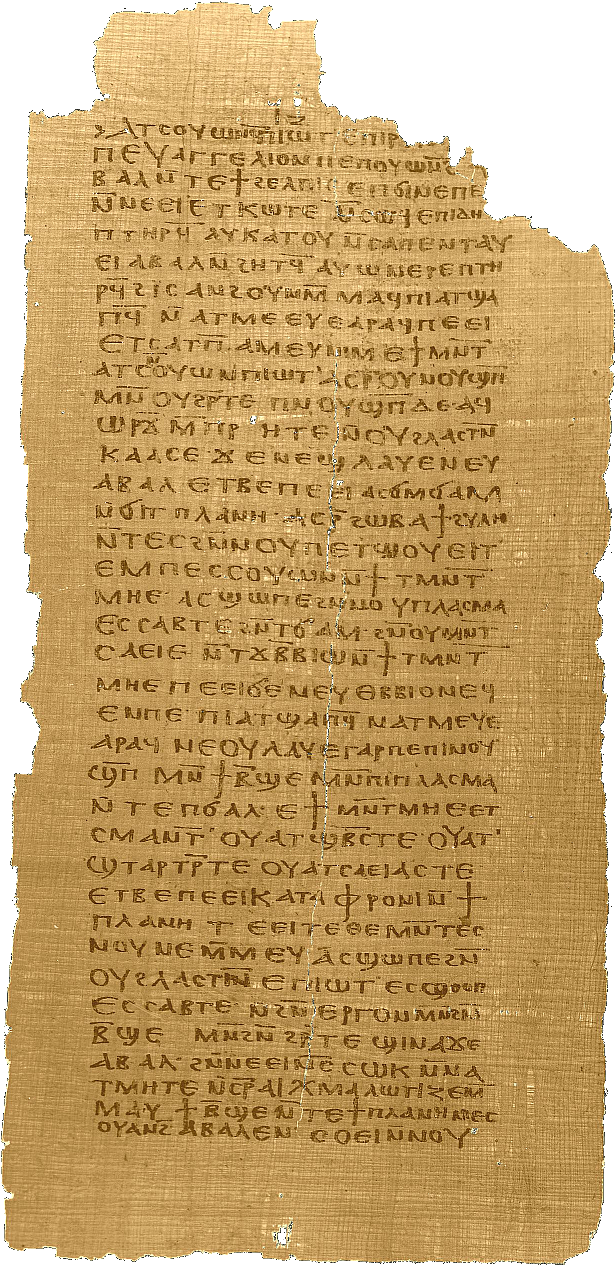 ⲁⲧⲥⲟⲩⲱⲛϥ̅ ⲡⲓⲱⲧ
ⲡⲉⲩⲁⲅⲅⲉⲗⲓⲟⲛ ⲡⲉ ⲡⲟⲩⲱⲛ̅ϩ
ⲃⲁⲗ ⲛ̅ⲧⲉ ϯϩⲉⲗⲡⲓⲥ ⲉⲡϭⲓⲛⲉ ⲡⲉ
ⲛ̅ⲛⲉⲉⲓ ⲉⲧⲕⲱⲧⲉ ⲛ̅ⲥⲱϥ ⲉⲡⲓⲇⲏ
ⲡⲧⲏⲣϥ ⲁⲩⲕⲁⲧⲟⲩ ⲛ̅ⲥⲁ ⲡⲉⲛⲧⲁⲩ
ⲉⲓ ⲁⲃⲁⲗ ⲛ̅ϩⲏⲧϥ̅ ⲁⲩⲱ ⲛⲉⲣⲉⲡⲧⲏ
ⲣϥ̅ ϩⲓⲥⲁⲛϩⲟⲩⲛ ⲙ̅ⲙⲁϥ ⲡⲓⲁⲧϣⲁ
ⲡϥ̅ ⲛ̅ⲁⲧⲙⲉⲉⲩⲉ ⲁⲣⲁϥ ⲡⲉⲉⲓ
ⲉⲧⲥⲁⲧⲡ̅ ⲁⲙⲉⲩ ⲛⲓⲙ ⲉϯⲙⲛ̅ⲧ
ⲁⲧⲥⲟⲩⲱⲛ ⲡⲓⲱⲧ ⲁⲥⲣ̅ ⲟⲩⲛⲟⲩϣⲡ̅
ⲙⲛ̅ ⲟⲩϩⲣ̅ⲧⲉ ⲡⲛⲟⲩϣⲡ̅ ⲇⲉ ⲁϥ
ⲱⲣϫ̅ ⲙ̅ⲡⲣⲏⲧⲉ ⲛ̅ⲟⲩϩⲗⲁⲥⲧⲛ̅
ⲕⲁⲁⲥⲉ ϫⲉ ⲛⲉϣ ⲗⲁⲩⲉ ⲛⲉⲩ
ⲁⲃⲁⲗ ⲉⲧⲃⲉ ⲡⲉⲉⲓ ⲁⲥϭⲙ̅ϭⲁⲙ
ⲛ̅ϭⲓ ⲧⲡⲗⲁⲛⲏ ⲁⲥⲣ̅ ϩⲱⲃ ⲁϯϩⲩⲗⲏ
ⲛ̅ⲧⲉⲥ ϩⲛ̅ⲛ ⲟⲩⲡⲉⲧϣⲟⲩⲉⲓⲧ
ⲉⲙⲡⲉⲥⲥⲟⲩⲱⲛ ⲛ̅ϯⲧⲙⲛ̅ⲧ
ⲙⲏⲉ ⲁⲥϣⲱⲡⲉ ϩⲛ̅ⲛⲟⲩⲡⲗⲁⲥⲙⲁ
ⲉⲥⲥⲁⲃⲧⲉ ϩⲛ̅ ⲧϭⲁⲙ ϩⲛ̅ ⲟⲩⲙⲛ̅ⲧ
ⲥⲁⲉⲓⲉ ⲛ̅ⲧϫⲃ̅ⲃⲓⲱ ⲛ̅ϯⲧⲙⲛ̅ⲧ
ⲙⲏⲉ ⲡⲉⲉⲓ ϭⲉ ⲛⲉⲩⲑⲃⲃⲓⲟ ⲛⲉϥ
ⲉⲛ ⲡⲉ ⲡⲓⲁⲧϣⲁⲡϥ̅ ⲛⲁⲧⲙⲉⲩⲉ
ⲁⲣⲁϥ ⲛⲉⲟⲩⲗⲁⲩⲉ ⲅⲁⲣ ⲡⲉ ⲡⲓⲛⲟⲩ
ϣⲡ̅ ⲙⲛ̅ ϯⲃ̅ϣⲉ ⲙⲛ̅ ⲡⲓⲡⲗⲁⲥⲙⲁ
ⲛ̅ⲧⲉ ⲡϭⲁⲗ ⲉϯⲙⲛ̅ⲧⲙⲏⲉ ⲉⲧ
ⲥⲙⲁⲛⲧ̅ ⲟⲩⲁⲧϣⲃ̅ⲥ̅ ⲧⲉ ⲟⲩⲁⲧ
ϣⲧⲁⲣⲧⲣ̅ ⲧⲉ ⲟⲩⲁⲧⲥⲁⲉⲓⲁⲥ ⲧⲉ
ⲉⲧⲃⲉ ⲡⲉⲉⲓ ⲕⲁⲧⲁⲫⲣⲟⲛⲓ ⲛ̅ϯ
ⲡⲗⲁⲛⲏ ⲧⲉⲉⲓ ⲧⲉ ⲑⲉ ⲙⲛ̅ⲧⲉⲥ
ⲛⲟⲩⲛⲉ ⲙ̅ⲙⲉⲩ ⲁⲥϣⲱⲡⲉ ϩⲛ̅
ⲟⲩϩⲗⲁⲥⲧⲛ̅ ⲉⲡⲓⲱⲧ ⲉⲥϣⲟⲟⲡ
ⲉⲥⲥⲁⲃⲧⲉ ⲛ̅ϩⲛ̅ⲉⲣⲅⲟⲛ ⲙⲛ̅ ϩⲛ̅
ⲃ̅ϣⲉ ⲙⲛ̅ ϩⲛ̅ϩⲣ̅ⲧⲉ ϣⲓⲛⲁ ϫⲉ
ⲁⲃⲁⲗ ϩⲛ̅ ⲛⲉⲉⲓ ⲛ̅ⲥⲥⲱⲕ ⲛ̅ⲛⲁ
ⲧⲙⲏⲧⲉ ⲛ̅ⲥⲣ̅ⲁⲓⲭⲙⲁⲗⲱⲧⲓⲍⲉ ⲙ̅
ⲙⲁⲩ ϯⲃ̅ϣⲉ ⲛ̅ⲧⲉ ϯⲡⲗⲁⲛⲏ ⲛⲉⲥ
ⲟⲩⲁⲛϩ ⲁⲃⲁⲗ ⲉⲛ ⲥⲟⲉⲓ ⲛ̅ⲛⲟⲩ